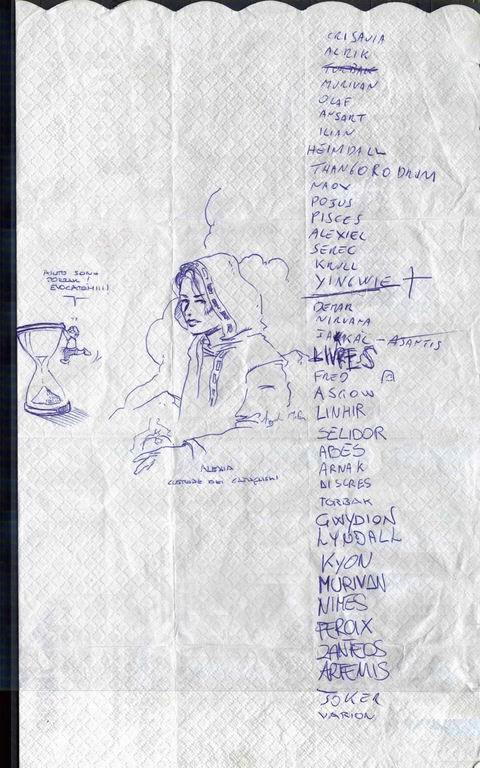 AIUTO SONO
TORBAK!
EVOCATEMI!!!
ALEXIA
CUSTODE DEI CATACLISMI
CRISANIA
ALRIK
TORBAK
MURIVAN
OLAF
ANSART
ILIAN
HEIMDALL
THANGORODRIM
NAOX
POSUS
PISCES
ALEXIEL
SEREC
KRULL
YINGWIE
DEMAR
NIRVANA
AJANTIS
LIVRES
FRED
ASGOW
LINHIR
SELIDOR
ABES
ARNAK
DISCRES
TORBAK
GWYDION
LYNDALL
KYON
MURIVAN
NIMES
FEROIX
ARTEMIS
JOKER
VARION